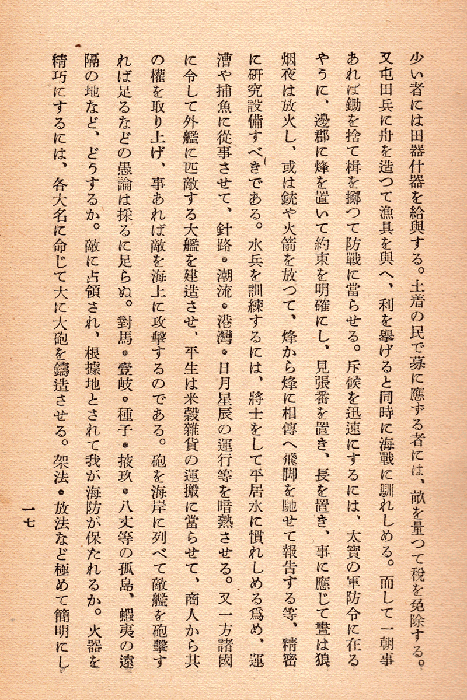 少い者には田器什器を給與する。土着の民で募に應ずる者には、畝を量つて税を免除する。
又屯田兵に舟を造つて漁具を與へ、利を擧げると同時に海戰に馴れしめる。而して一朝事
あれば鋤を捨て楫を擲つて防戰に當らせる。斥候を迅速にするには、太寶の軍防令に在る
やうに、邊郡に烽を置いて約束を明確にし、見張番を置き、長を置き、事に應じて晝は狼
烟夜は放火し、或は銃や火箭を放つて、烽から烽に相傳へ飛脚を馳せて報告する等、精密
に研究設備すべきである。水兵を訓練するには、將士をして平居水に慣れしめる爲め、運
漕や捕魚に從事させて、針路・潮流・港灣・日月星辰の運行等を暗熟させる。又一方諸國
に令して外艦に匹敵する大艦を建造させ、平生は米穀雜貨の運搬に當らせて、商人から其
の權を取り上げ、事あれば敵を海上に攻擊するのである。砲を海岸に列べて敵艦を砲擊す
れば足るなどの愚論は採るに足らぬ。對馬・壹岐・種子・掖玖・八丈等の孤島、蝦夷の遠
隔の地など、どうするか。敵に占領され、根據地とされて我が海防が保たれるか。火器を
精巧にするには、各大名に命じて大に大砲を鑄造させる。架法・放法など極めて簡明にし
一七